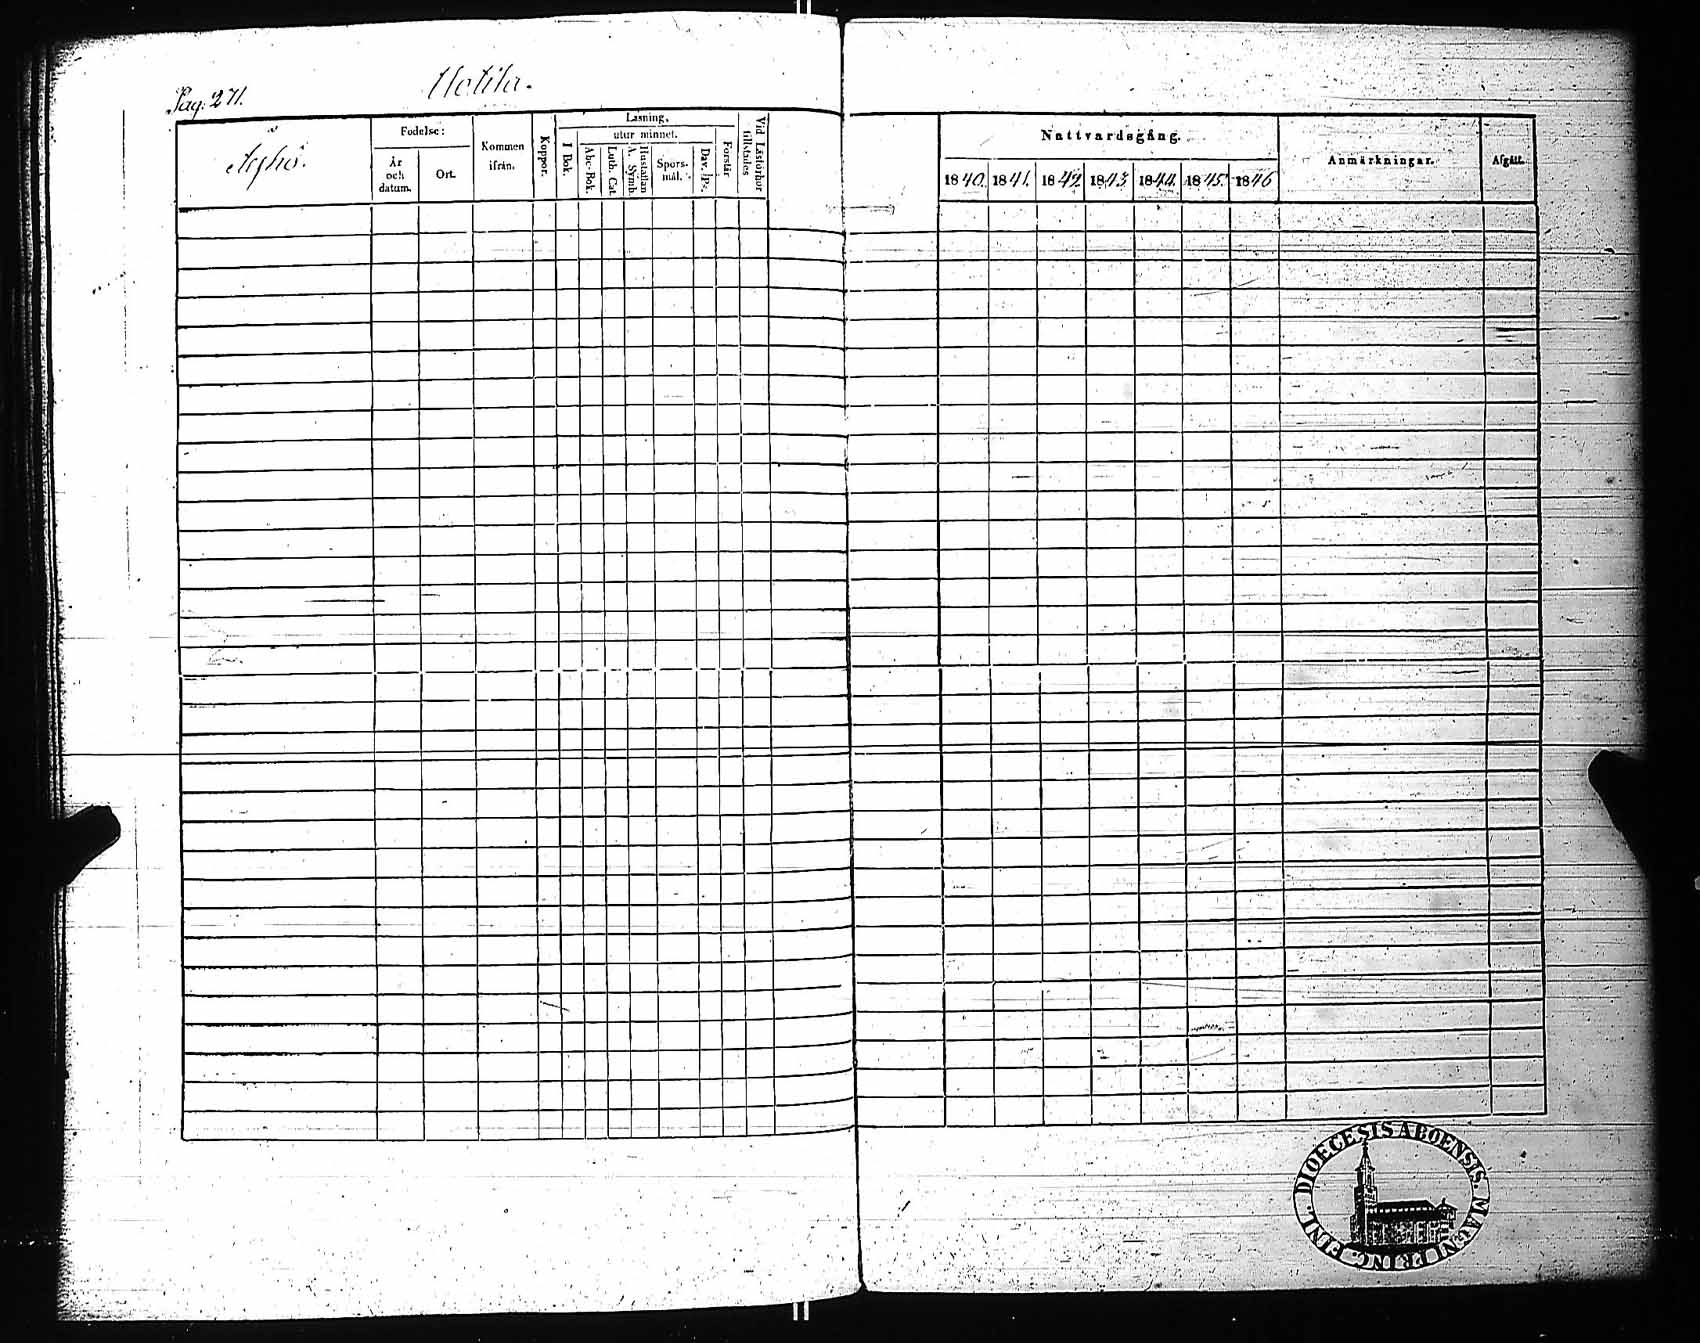 Pag: 271.
Uotila.
Äyhö.
Fodelse:
År och datum.
Ort.
Kommen ifrån.
Koppor.
Läsning,
I Bok.
utur minnet.
Abc-Bok.
Luth. Cat.
A. Symb.
Hustaflan
Spörs- mål.
Dav. Ps.
Förstår.
Vid Läsförhör tillstädes
Nattvardsgång.
1840. 1841. 1842. 1843. 1844. 1845. 1846
Anmärkningar.
Afgått.
DIOECESIS ABOENSIS. MAGNI PRINC. FINL.